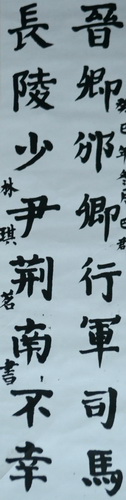 晉卿邠卿行軍司馬
長陵少尹荊南不幸
林琪茗書